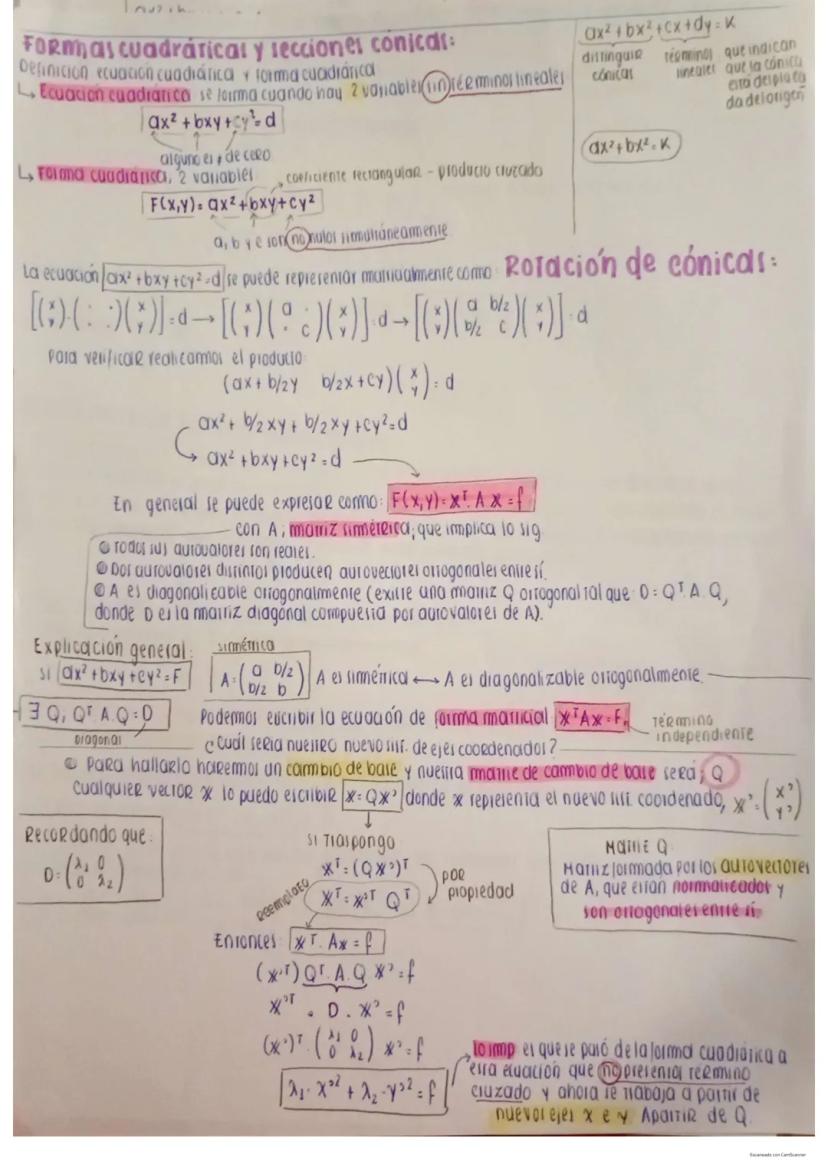 Formas cuadráticas y secciones cónicas:
Definición ecuación cuadrática y forma cuadrática
↳ Ecuación cuadrática se forma cuando hay 2 variables sin términos lineales
ax² + bxy + cy² = d
alguno es ≠ de cero
↳ Forma cuadrática, 2 variables
coeficiente rectangular - producto cruzado
F(x,y) = ax² + bxy + cy²
a, b y c son no nulos simultáneamente
ax² + bx² + cx + dy = K
distinguir cónicas
términos lineales
que indican
que la cónica
está desplaza
da del origen
ax² + bx² = K
La ecuación ax² + bxy + cy² = d se puede representar matricialmente como:
Rotación de cónicas:
[(x y)·(· · · ·)(x y)] = d → [(x y)(a · · c)(x y)] = d → [(x y)(a b/2 b/2 c)(x y)] = d
Para verificar realicamos el producto:
(ax + b/2y b/2x + cy)(x y) = d
ax² + b/2 xy + b/2 xy + cy² = d
ax² + bxy + cy² = d
En general se puede expresar como: F(x,y) = xᵀ. A x = f
con A; matriz simétrica; que implica lo sig
Todos sus autovalores son reales.
Dos autovalores distintos producen autovectores ortogonales entre sí.
A es diagonalizable ortogonalmente (existe una matriz Q ortogonal tal que: D = Qᵀ. A. Q,
donde D es la matriz diagonal compuesta por autovalores de A).
Explicación general:
simétrica
si ax² + bxy + cy² = F
A = (a b/2 b/2 b) A es simétrica ↔ A es diagonalizable ortogonalmente.
∃ Q, Qᵀ. A. Q = D
Podemos escribir la ecuación de forma matricial xᵀAx = F,
término
independiente
¿cuál sería nuestro nuevo sist. de ejes coordenados?
Para hallarlo haremos un cambio de base y nuestra matriz de cambio de base será; Q
Cualquier vector x lo puedo escribir x = Qx' donde x representa el nuevo sist coordenado, x' = (x' y')
Recordando que:
D = (λ₁ 0 0 λ₂)
Si traspongo
xᵀ = (Qx')ᵀ
xᵀ = x'ᵀ Qᵀ
por
propiedad
reemplazo
Matriz Q:
Matriz formada por los autovectores
de A, que están normalizados y
son ortogonales entre sí.
Entonces: xᵀ. Ax = f
(x'ᵀ) Qᵀ. A. Q x' = f
x'ᵀ . D . x' = f
(x')ᵀ. (λ₁ 0 0 λ₂) x' = f
λ₁. x'² + λ₂. y'² = f
lo imp es que se pasó de la forma cuadrática a
esta ecuación que no presenta término
cruzado y ahora se trabaja a partir de
nuevos ejes x e y Apartir de Q.
Escaneado con CamScanner